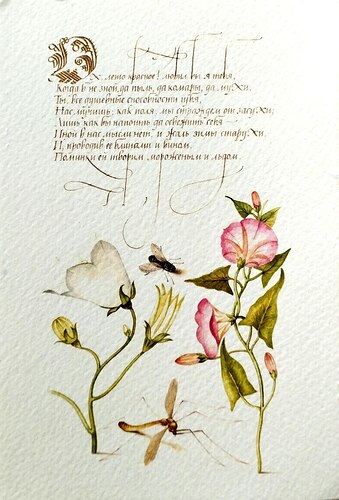 Ох, лето красное! любил бы я тебя,
Когда б не зной, да пыль, да комары, да мухи.
Ты, все душевные способности губя,
Нас мучишь; как поля, мы страждем от засухи;
Лишь как бы напоить да освежить себя —
Иной в нас мысли нет, и жаль зимы старухи,
И, проводив ее блинами и вином,
Поминки ей творим мороженым и льдом.